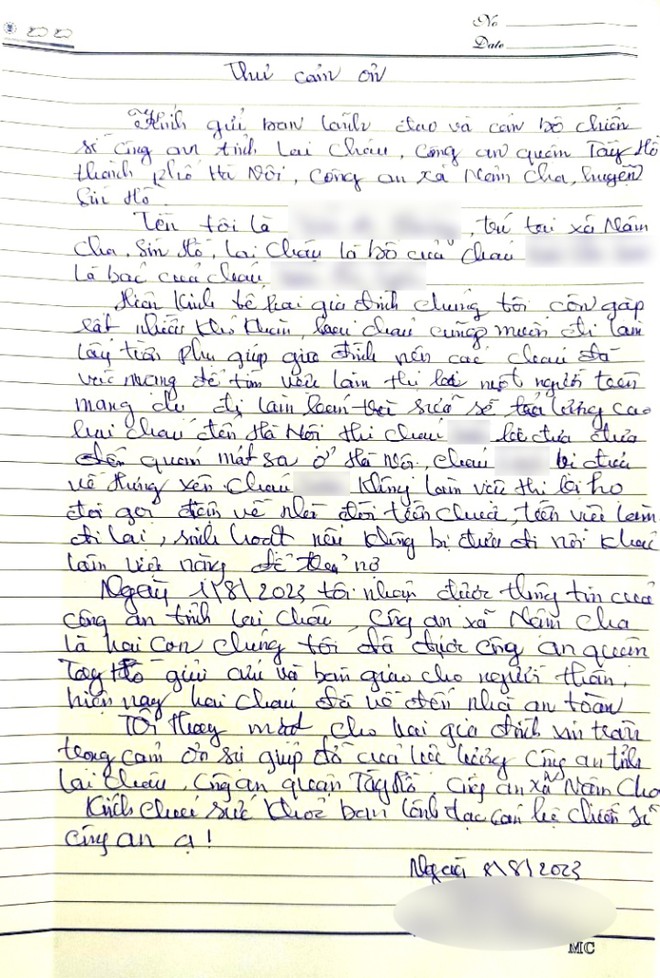 No
Date
Thư cảm ơn
Kính gửi ban lãnh đạo và cán bộ chiến
sĩ công an tỉnh Lai Châu, Công an quận Tây Hồ
thành phố Hà Nội, Công an xã Nậm Cha, huyện
Sìn Hồ.
Tên tôi là , trú tại xã Nậm
Cha, Sìn Hồ, Lai Châu là bố của cháu
là bác của cháu
Hiện kinh tế hai gia đình chúng tôi còn gặp
rất nhiều khó khăn, cháu cũng muốn đi làm
lấy tiền phụ giúp gia đình nên các cháu đã
vào mạng để tìm việc làm thì bị một người trên
mạng dụ đi làm sẽ trả lương cao
hai cháu đến Hà Nội thì cháu bị đưa
đến quán mát sa ở Hà Nội, cháu bị đưa
về Hưng Yên cháu không làm việc thì bị họ
đòi gọi điện về nhà đòi tiền chuộc, tiền việc làm
đi lại, sinh hoạt nếu không bị đưa đi nơi khác
làm việc nặng để trả nợ
Ngày 1/8/2023 tôi nhận được thông tin của
công an tỉnh Lai Châu, công an xã Nậm Cha
là hai con chúng tôi đã được công an quận
Tây Hồ giải cứu và bàn giao cho người thân,
hiện nay hai cháu đã về đến nhà an toàn
Tôi thay mặt cho hai gia đình xin trân
trọng cảm ơn sự giúp đỡ của lực lượng công an tỉnh
Lai Châu, công an quận Tây Hồ, công an xã Nậm Cha
Kính chúc sức khoẻ ban lãnh đạo cán bộ chiến sĩ
công an ạ!
Ngày 8/8/2023
MC